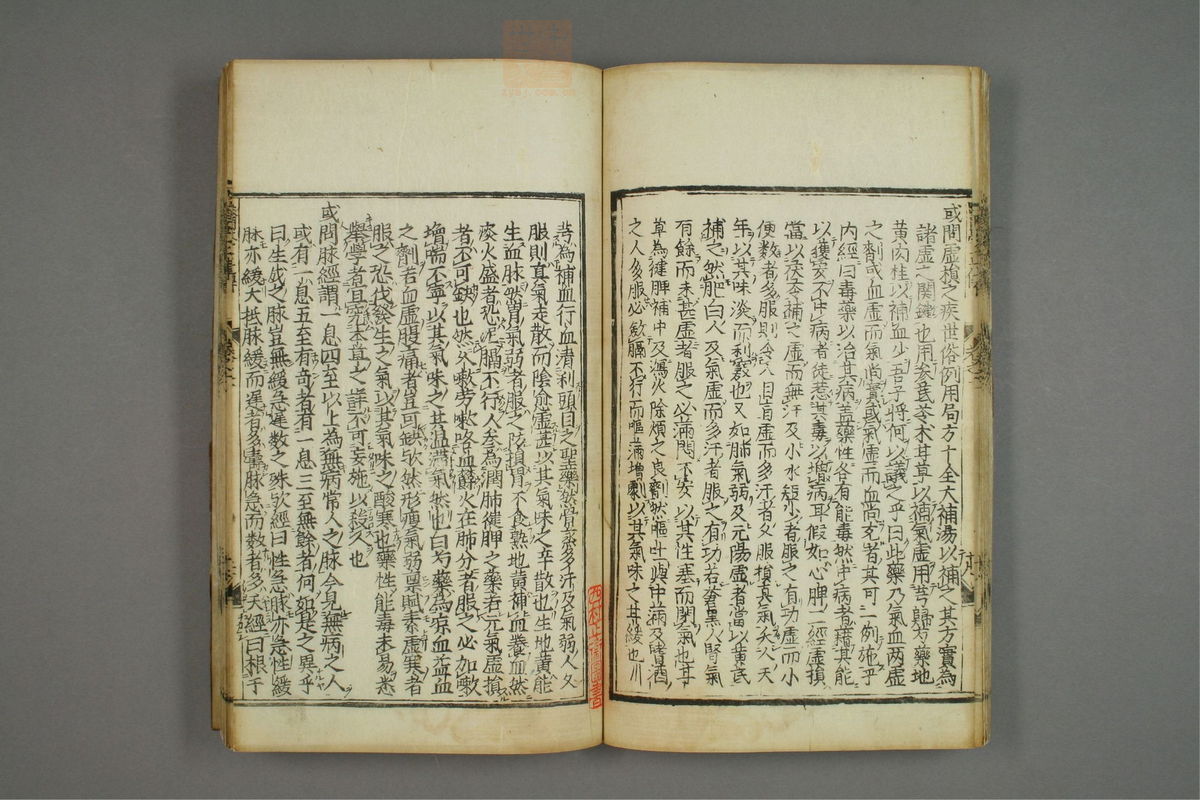 或問虛損之疾世俗例用局方十全大補湯以補之其方實為
諸虛之關鍵也用參芪苓木甘草以補氣虛用芎歸芍藥地
黃肉桂以補血少吾子將何以議之乎曰此藥乃氣血兩虛
之劑或血虛而氣尚實或氣虛而血尚充者其可一例施乎
內經曰毒藥以治其病盖藥性各有能毒然中病者藉其能
以獲安不中病者徒惹其毒以增病耳假如心脾二經虛損
當以茯苓補之虛而無汗及小水短少者服之有功虛而小
便數者多服則令人目盲虛而多汗者久服損真氣夭人天
年以其味淡而利竅也又如肺氣弱及元陽虛者當以黃芪
補之然肥白人及氣虛而多汗者服之有功若蒼黑人腎氣
有餘而未甚虛者服之必滿悶不安以其性塞而閉氣也甘
草為健脾補中及瀉火除煩之良劑然嘔吐與中滿及嗜酒
之人多服必斂膈不行而嘔滿增劇以其氣味之甘緩也川
芎為補血行血清利頭目之聖藥然骨蒸多汗及氣弱人久
服則真氣走散而陰愈虛甚以其氣味之辛散也生地黃能
生血脉然胃氣弱者服之防損胃不食熟地黃補血養血然
痰火盛者恐泥膈不行人參為潤肺健脾之藥若元氣虛損
者不可缺也然久嗽勞嗽咯血鬱火在肺分者服之必加嗽
增喘不寧以其氣味之甘溫滯氣然也白芍藥為凉血益血
之劑若血虛腹痛者豈可缺歟然形瘦氣弱稟賦素虛寒者
服之恐伐發生之氣以其氣味之酸寒也藥性能毒未易悉
舉學者宜究本草之詳不可妄施以殺人也
或問脉經謂一息四至以上為無病常人之脉今見無病之人
或有一息五至有奇者有一息三至無餘者何如是之異乎
曰生成之脉豈無緩急遲數之殊歟經曰性急脉亦急性緩
脉亦緩大抵脉緩而遲者多壽脉急而數者多夭經曰根于